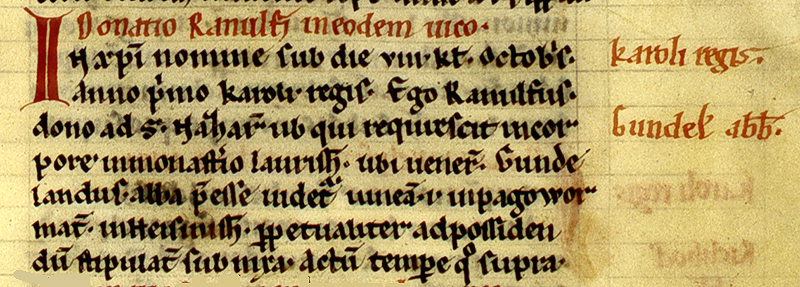 Donatio Ranulfi in eodem uico·
In xp̄i nomine sub die viii kł. Octobˀs.
anno p̄mo karoli regis. Ego Ranulfus.
dono ad S. Naȝar̄ ub qui requiescit in cor
pore in monast̄io laurish̄. ubi uener̄. Gunde
landus. abba p̄esse uidet᷑ uineā. i. in pago wor
mat̄. in ittersinish̄. ꝑpetualiter ad possiden
dū stipulat̄ sub nixa. Actū temꝑe q̊ supra.
karoli regis.
Gundel abb̄.